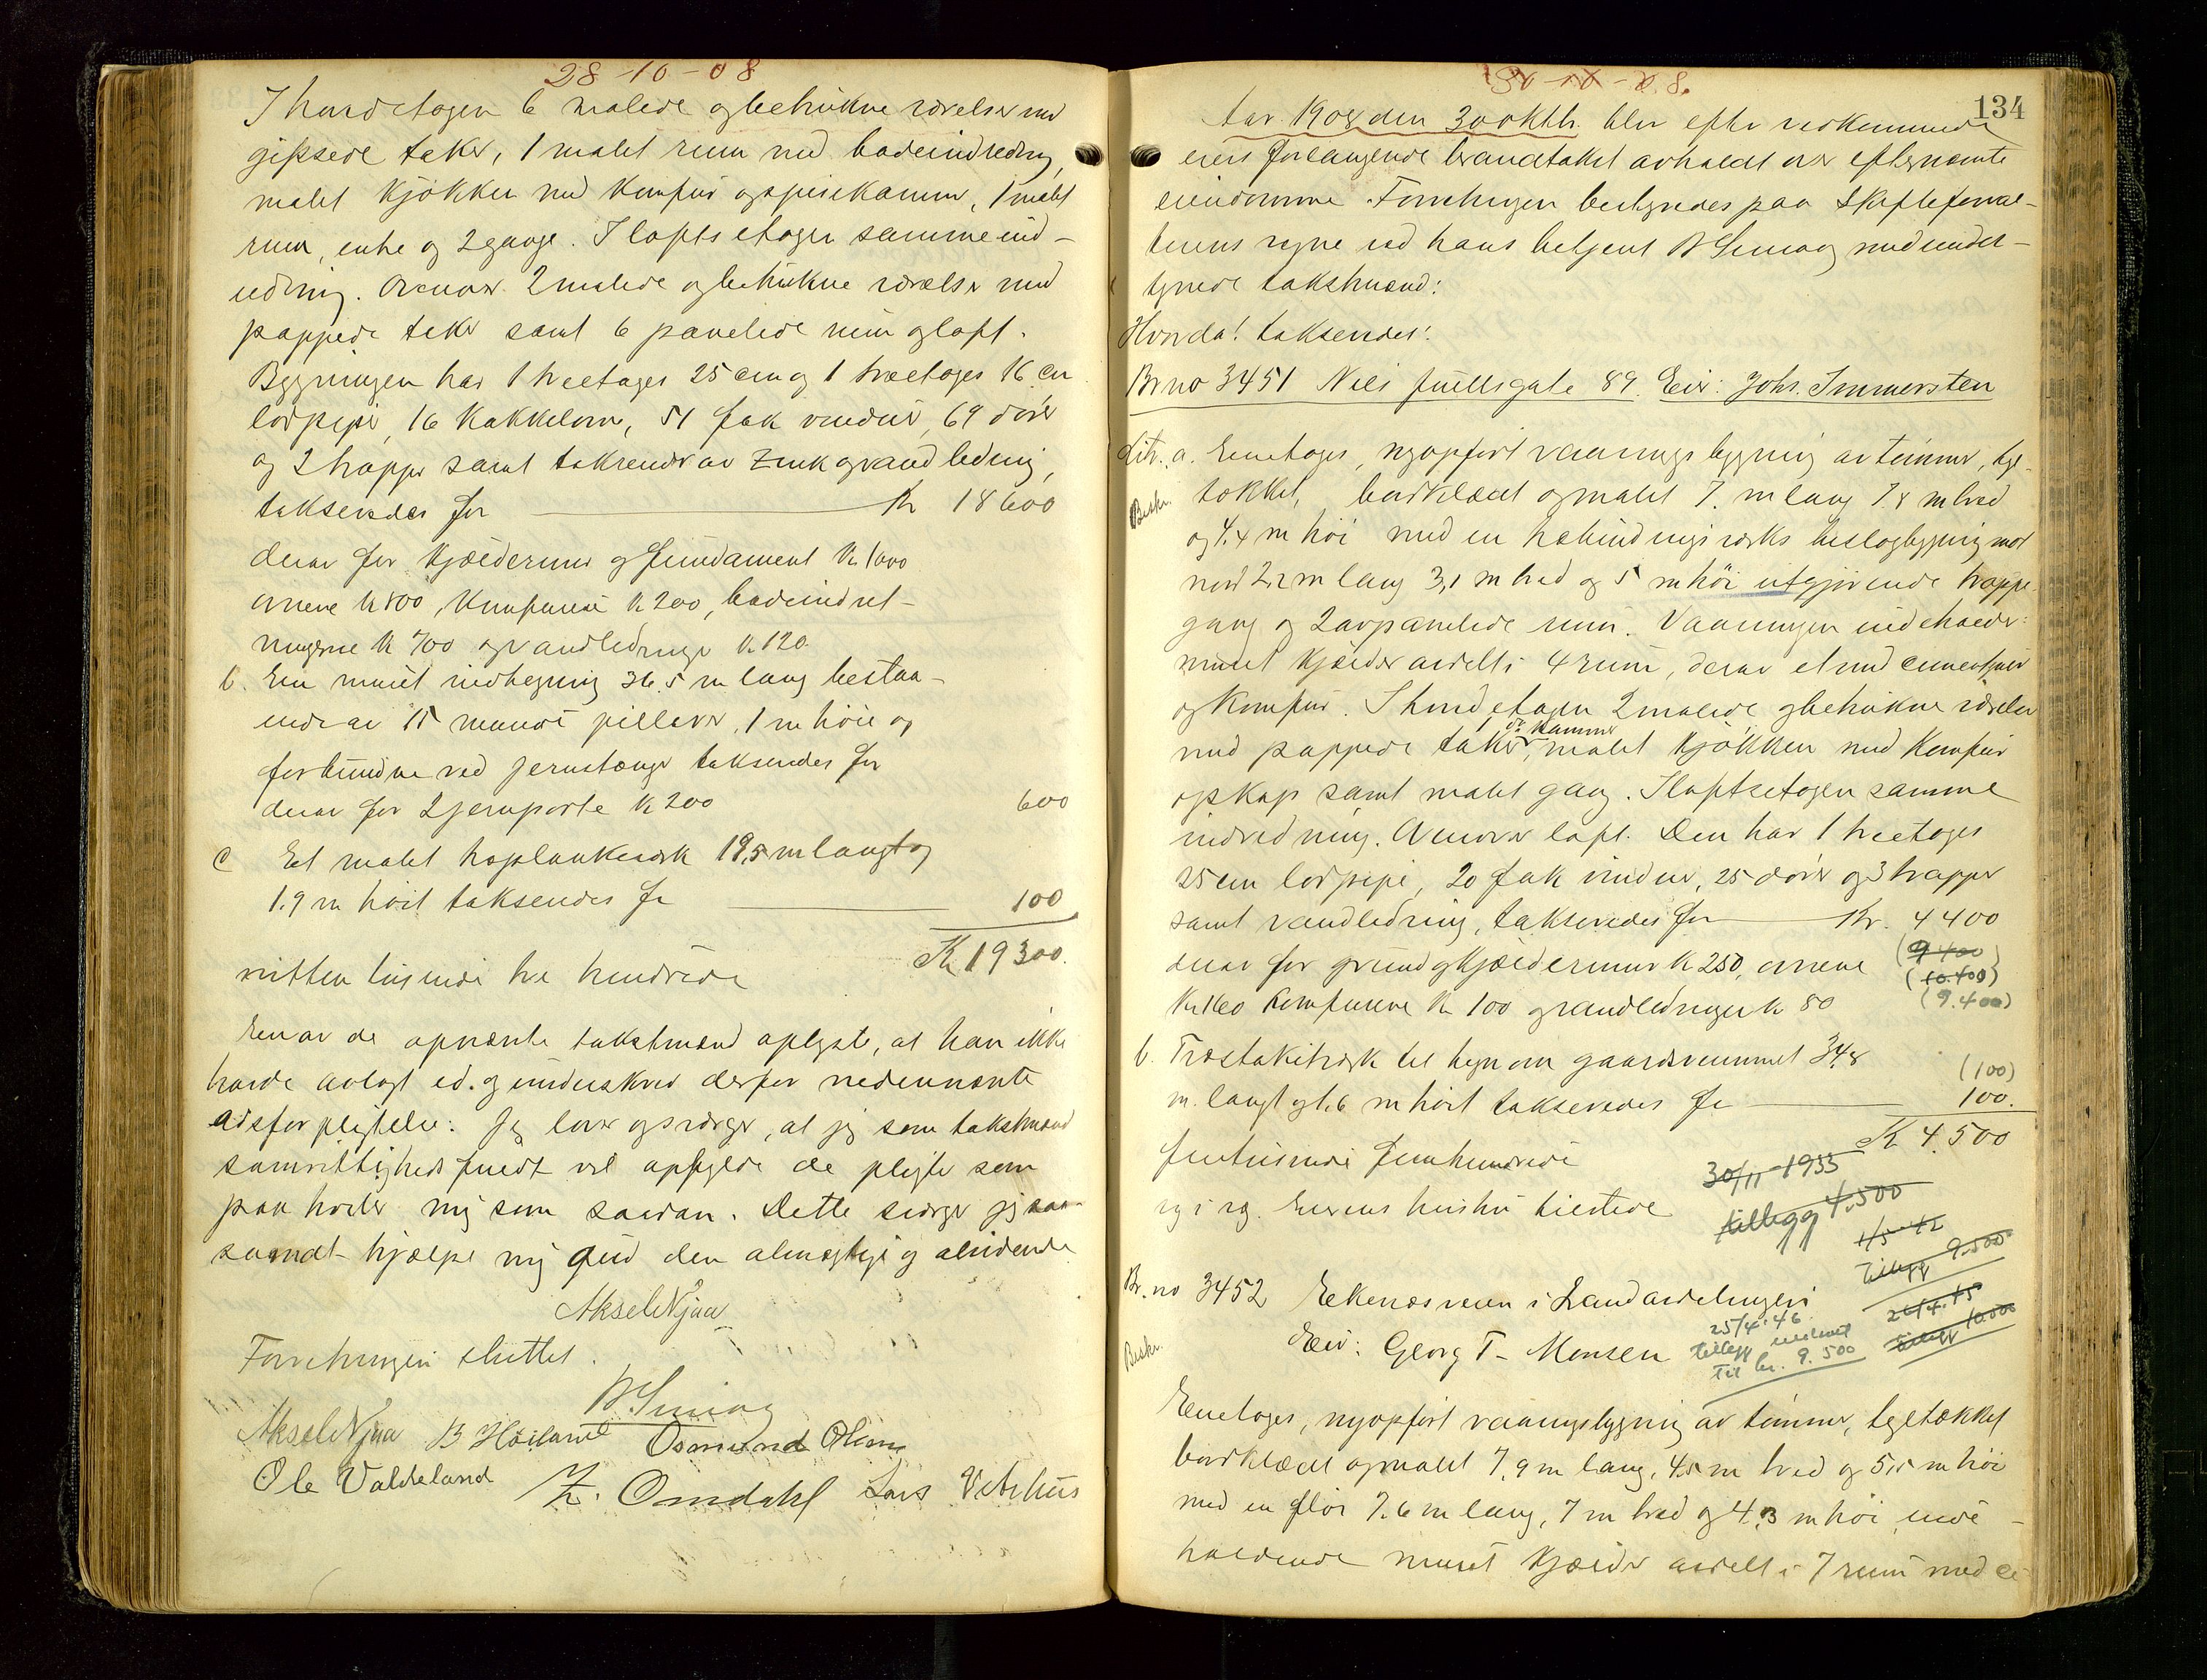 28-10-08
I hovedetagen 6 malede og betrukne værelser med
gipsede taker, 1 malet rum med badeindredning,
malet kjøkken med komfur og spisekammer, 1 malet
rum, entre og 2 gange. I loftsetagen samme ind-
redning. Ovenover 2 malede og betrukne værelser med
pappede taker samt 6 panelede rum og loft.
Bygningen har 1 treetages 25 cm og 1 toetages 16 cm
lodpipe, 16 kakkelovne, 51 fak vinduer, 69 dører
og 2 trapper samt takrender av zink og vandledning,
takseredes for Kr 18600
derav for kjældermur og fundament Kr 1000
ovnene kr 800, komfurene kr 200, badeindret-
ningerne kr 700 og vandledninger kr 120.
b. En muret indhegning 36.5 m lang bestaa-
ende av 15 murede pillarer, 1 m høie og
forbundne ved jernstænger takseredes for
derav for 2 jernporte kr 200 600
c Et malet træplankeverk 19,5 m langt og
1.9 m høit takseredes for 100
Kr 19300.
nitten tusinde tre hundrede
En av de opnævnte takstmænd oplyste, at han ikke
havde avlagt ed. og underskrev derfor nedennævnte
edsforpligtelse: Jeg lover og sværger, at jeg som takstmand
samvittighedsfuldt vil opfylde de pligter som
paa hviler mig som saadan. Dette sværger jeg saa
sandt hjælpe mig Gud den almægtige og alvidende
Aksel Njaa
Forretningen sluttet.
Aksel Njaa B Høiland Osmund Olsen
Ole Valdeland Z. Omdahl Lars Vetrhus
30-10-08.
134
Aar 1908 den 30 oktbr. blev efter vedkommende
eiers forlangende brandtakst avholdt over efternævnte
eiendomme. Forretningen bestyredes paa Skifteforval-
terens vegne ved hans betjent med under-
tegnede takstmænd:
Hvorda! takseredes:
Br no 3451 Niels Juellsgate 89. Eier: Johs. Immersten
Litr. a. Enetages, nyopført vaaningsbygning av tømmer, tegl-
Beskr. tækket, bordklædt og malet 7. m lang 7.8 m bred
og 4.4 m høi med en træbindingsverks beslagbygning mot
nord 2.2 m lang 3,1 m bred og 5 m høi utgjørende trappe-
gang og 2 avpanelede rum. Vaaningen indeholder:
muret kjælder avdelt i 4 rum, derav et med cementgulv
og komfur. I hovedetagen 2 malede og betrukne værelser
med pappede taker, 1 do kammer malet kjøkken med komfur
og skap samt malet gang. I loftsetagen samme
indredning. Ovenover loft. Den har 1 treetages
25 cm lodpipe, 20 fak vinduer, 25 dører og 3 trapper
samt vandledning, takseredes for Kr. 4400
derav for grund og kjældermur kr 250, ovnene (9400)
(10.400)
kr 160 komfurene kr 100 og vandledninger kr 80 (9.400)
b. Træstakitverk til hegn om gaardsrummet 34,8
(100)
m. langt og 1.6 m høit takseredes for 100.
Kr 4.500
firetusinde femhundrede
30/11-1933
tillegg 4.500
1/5-42
Tillegg 9.500
Br. no 3452 Ekenæsveien i Landavdelingen
26/4.45
Tillegg 10.500
Beskr. Eier: Georg T. Monsen
25/4.46
tillegg nedsat
til kr. 9.500
Enetages, nyopført vaaningsbygning av tømmer, tegltækket
bordklædt og malet 7,9 m lang, 4,5 m bred og 5,5 m høi
med en fløi 7.6 m lang, 7 m bred og 4.3 m høi inde-
holdende muret kjælder avdelt i 7 rum med ce